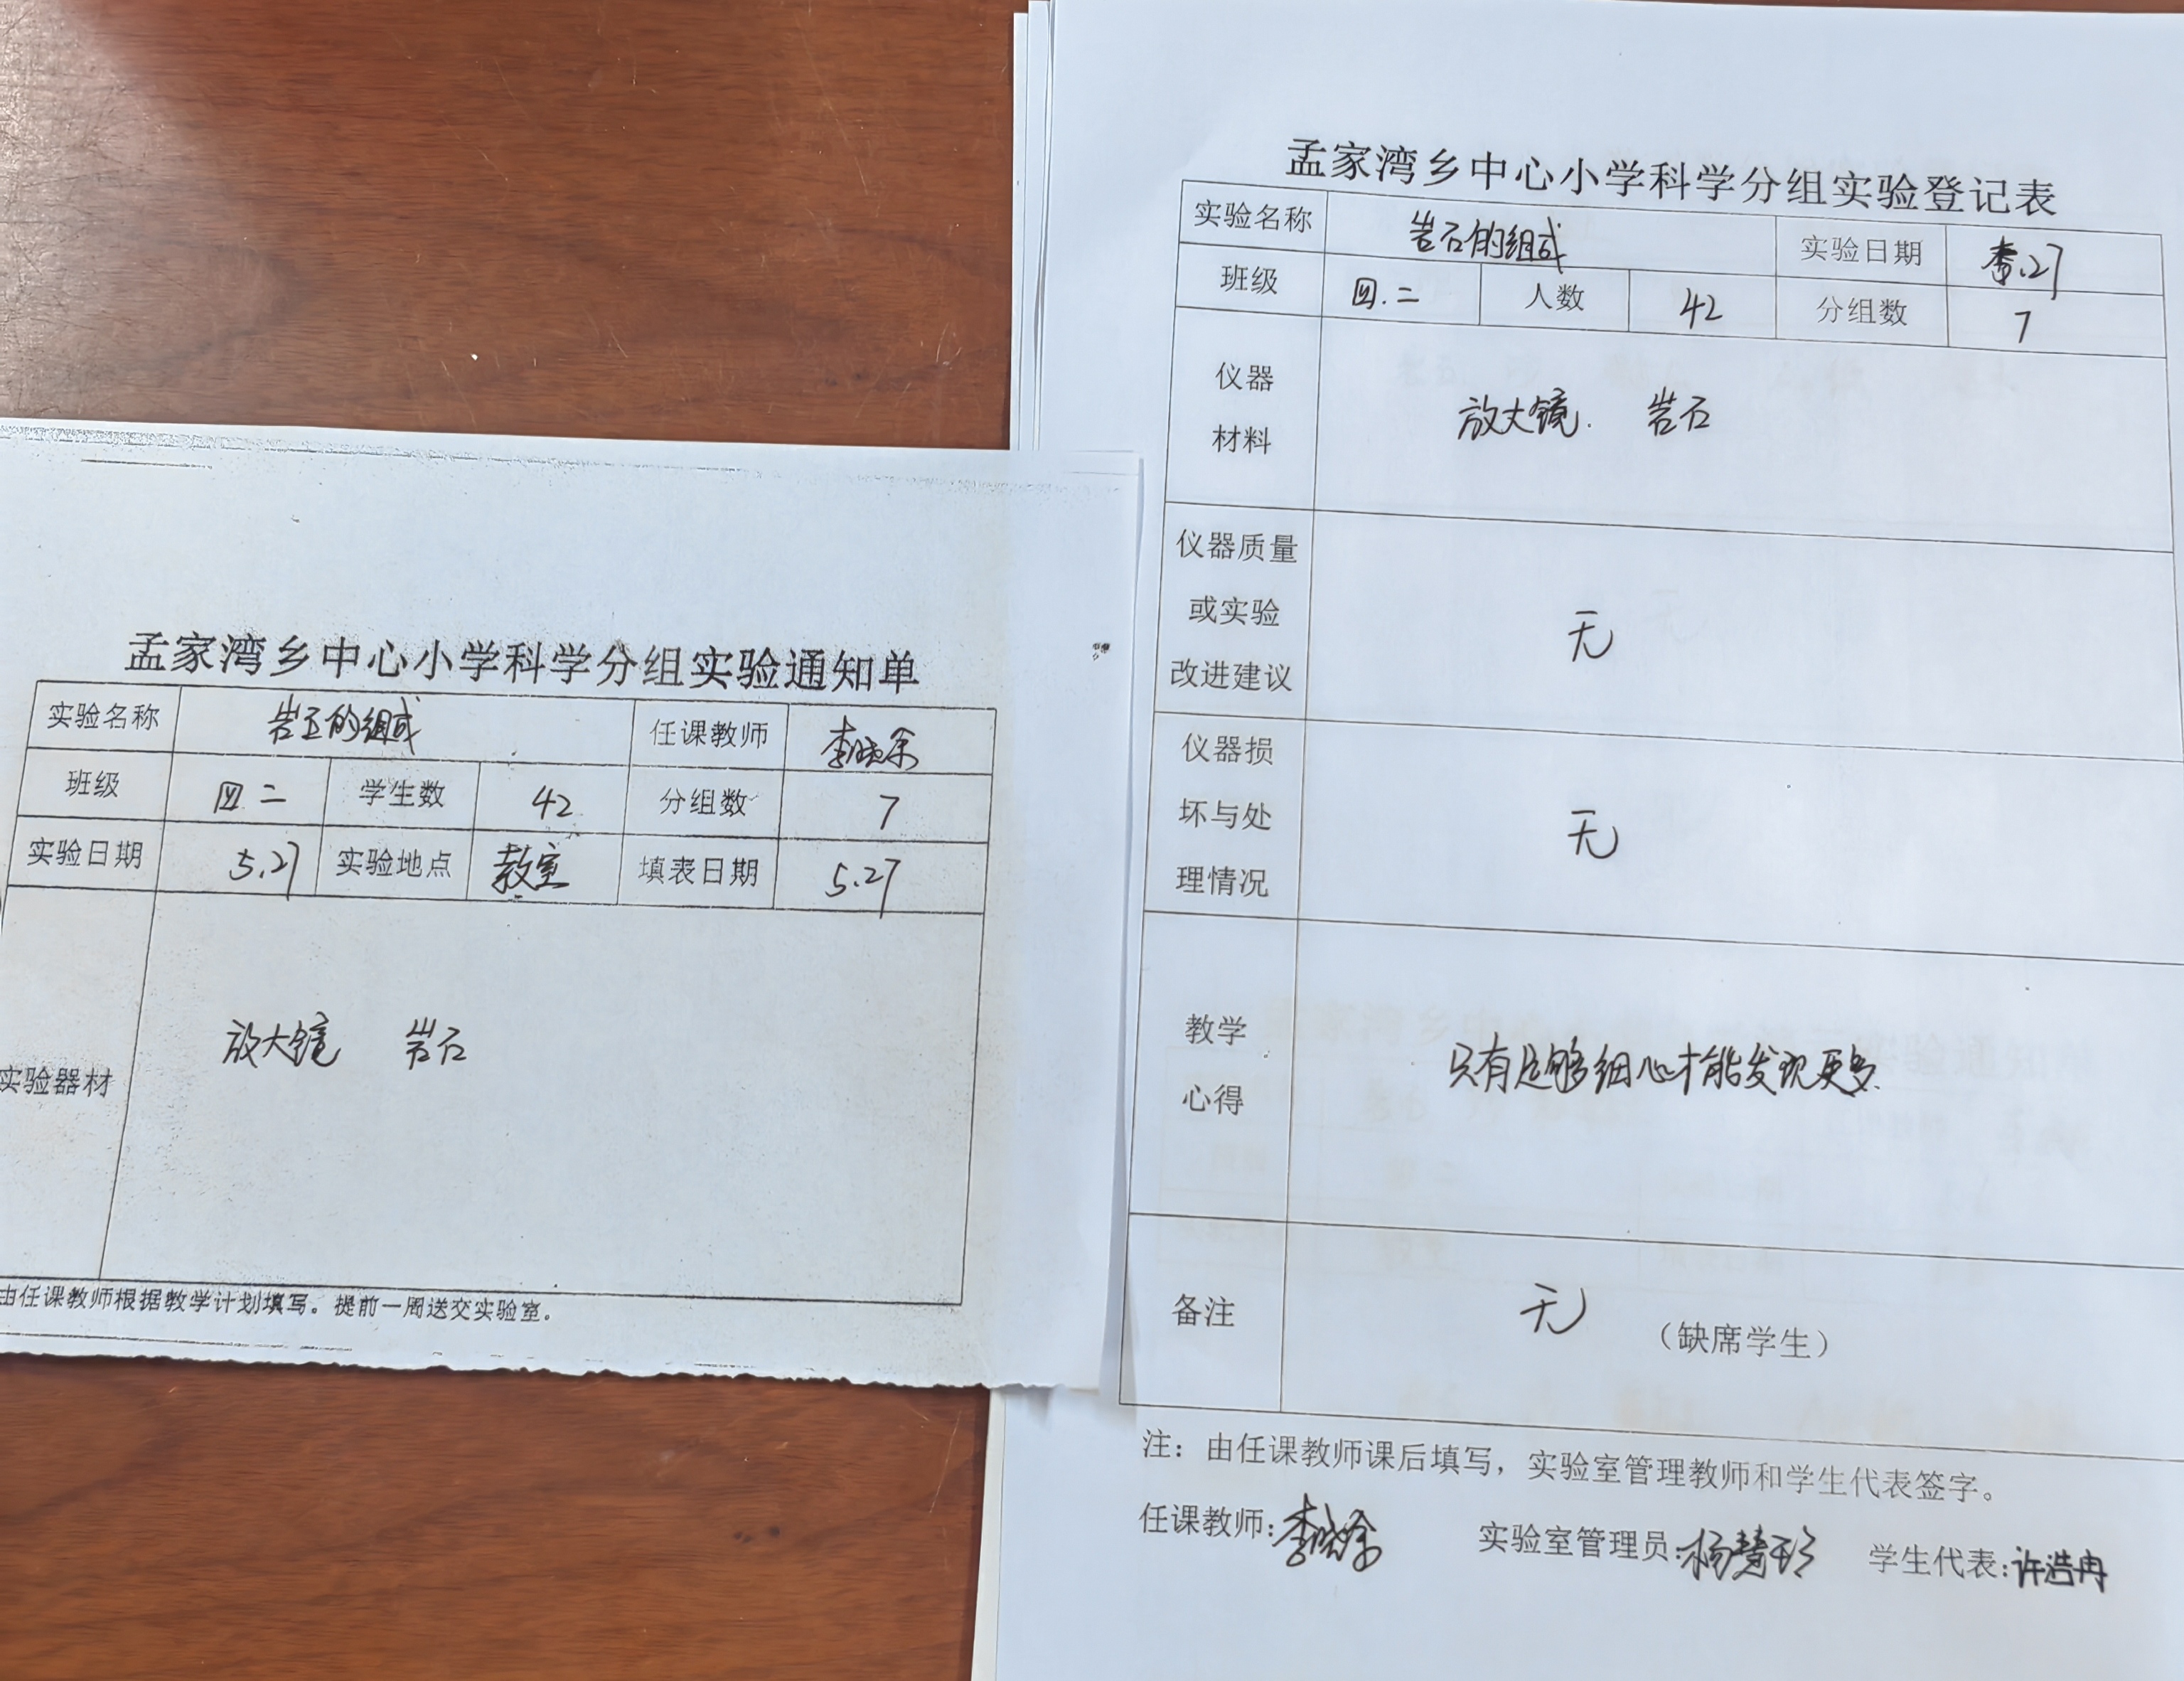 孟家湾乡中心小学科学分组实验通知单
实验名称 岩石的组成 任课教师 李晓余
班级 四二 学生数 42 分组数 7
实验日期 5.27 实验地点 教室 填表日期 5.27
实验器材 放大镜 岩石
由任课教师根据教学计划填写。提前一周送交实验室。
孟家湾乡中心小学科学分组实验登记表
实验名称 岩石的组成 实验日期 .27
班级 四.二 人数 42 分组数 7
仪器
材料
放大镜. 岩石
仪器质量
或实验
改进建议
无
仪器损
坏与处
理情况
无
教学
心得
只有足够细心才能发现更多.
备注 无 （缺席学生）
注：由任课教师课后填写，实验室管理教师和学生代表签字。
任课教师:李晓余 实验室管理员:杨慧珍 学生代表:许浩冉